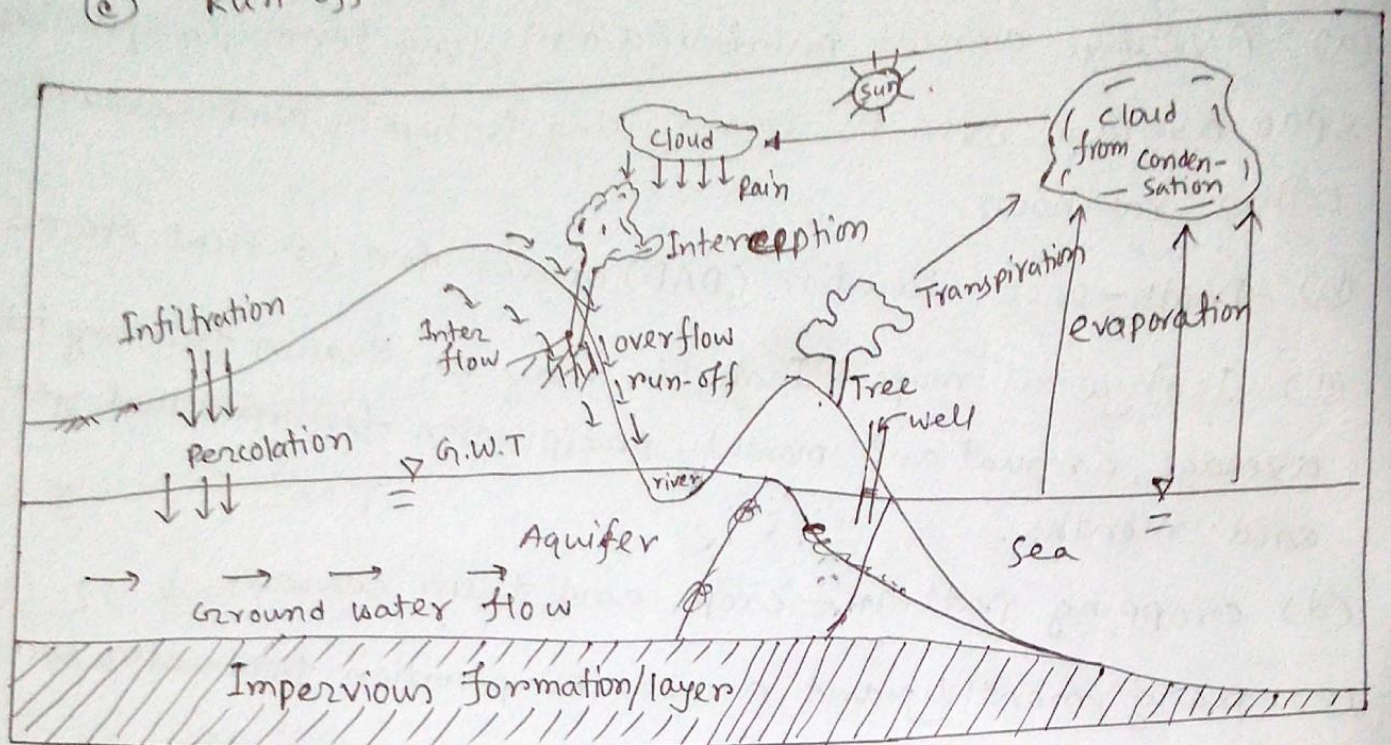 (e) Run-off
sun
cloud
from conden-
sation
cloud
Rain
Interception
Transpiration
evaporation
Infiltration
Inter
flow
overflow
run-off
Tree
well
Percolation
G.W.T
river
Aquifer
sea
Ground water flow
Impervious formation/layer